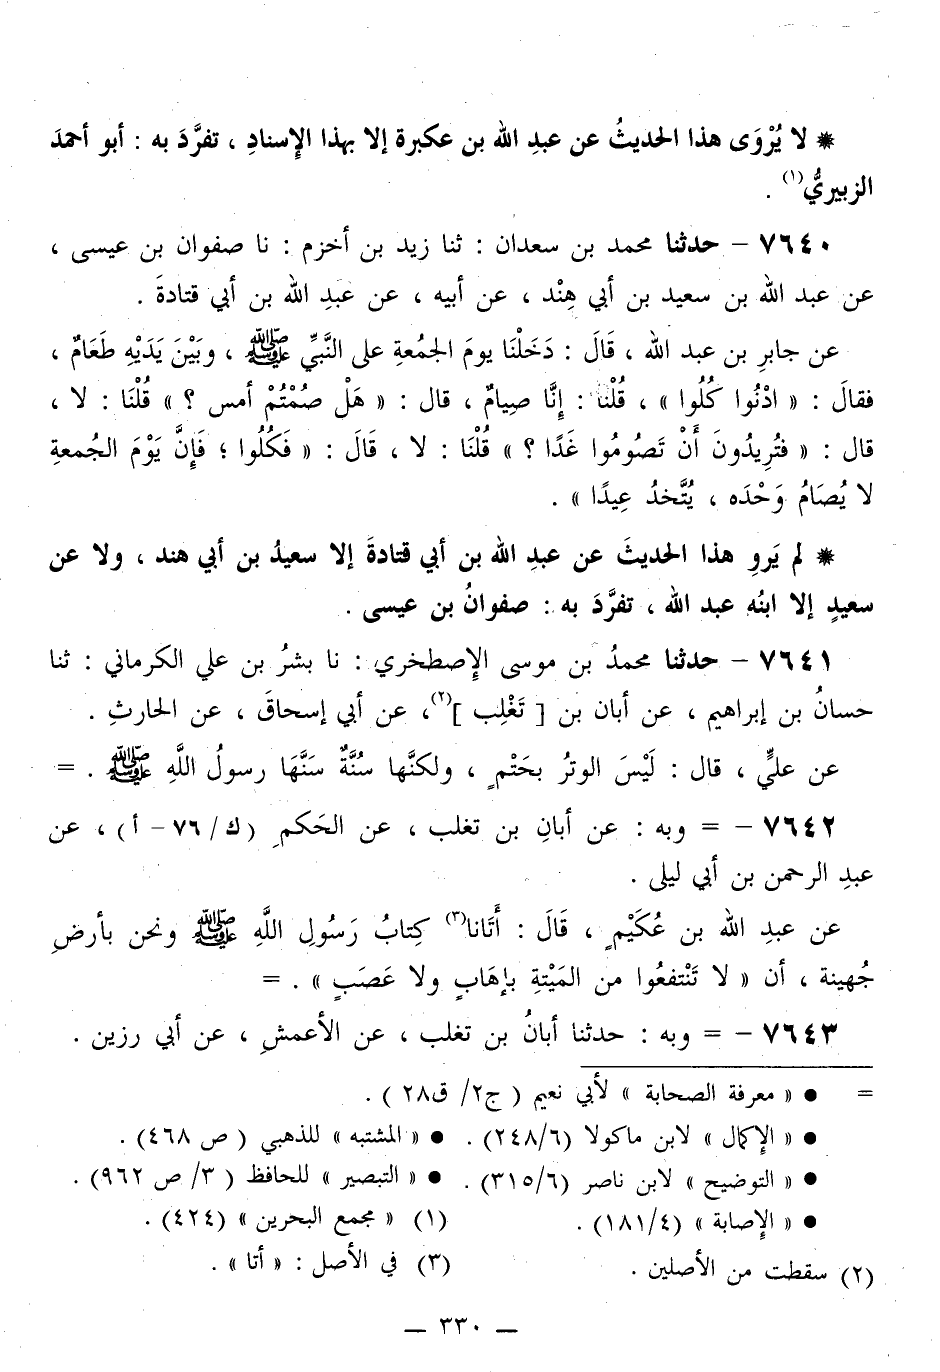 * لا يُرْوَى هذا الحديثُ عن عبدِ الله بن عكبرة إلا بهذا الإِسنادِ ، تفرَّدَ به : أبو أحمدَ
الزبيريُّ(١) .
٧٦٤٠ – حدثنا محمد بن سعدان : ثنا زيد بن أخزم : نا صفوان بن عيسى ،
عن عبد الله بن سعيد بن أبي هِنْد ، عن أبيه ، عن عبدِ الله بن أبي قتادةَ .
عن جابرِ بن عبد الله ، قَالَ : دَخَلْنَا يومَ الجمُعةِ على النَّبيِّ ﷺ ، وبَيْنَ يَدَيْهِ طَعَامٌ ،
فقالَ : « ادْنُوا كُلُوا » ، قُلْنَا : إِنَّا صِيامٌ ، قال : « هَلْ صُمْتُمْ أمس ؟ » قُلْنَا : لا ،
قال : « فتُرِيدُونَ أَنْ تَصُومُوا غَدًا ؟ » قُلْنَا : لا ، قَالَ : « فَكُلُوا ؛ فَإِنَّ يَوْمَ الجُمعةِ
لا يُصَامُ وَحْدَه ، يُتَّخذُ عِيدًا » .
* لم يَروِ هذا الحديثَ عن عبدِ الله بن أبي قتادةَ إلا سعيدُ بن أبي هند ، ولا عن
سعيدٍ إلا ابنُه عبد الله ، تفرَّدَ به : صفوانُ بن عيسى .
٧٦٤١ – حدثنا محمدُ بن موسى الإِصطخري : نا بشرُ بن علي الكرماني : ثنا
حسانُ بن إبراهيم ، عن أبان بن [ تَغْلِب ](٢)، عن أبي إسحاقَ ، عن الحارثِ .
عن عليٍّ ، قال : لَيْسَ الوترُ بحَتْمٍ ، ولكنَّها سُنَّةٌ سَنَّهَا رسولُ اللَّهِ ﷺ . =
٧٦٤٢ – = وبه : عن أبانِ بن تغلب ، عن الحَكمِ (ك/ ٧٦ – أ) ، عن
عبدِ الرحمن بن أبي ليلى .
عن عبدِ الله بن عُكَيْمٍ ، قَالَ : أَتَانا(٣) كِتابُ رَسُولِ اللَّهِ ﷺ ونحن بأرضِ
جُهينة ، أن « لا تَنْتفعُوا من المَيْتةِ بإهَابٍ ولا عَصَبٍ » . =
٧٦٤٣ – = وبه : حدثنا أبانُ بن تغلب ، عن الأعمشِ ، عن أبي رزين .
= ● « معرفة الصحابة » لأبي نعيم ( ج٢/ ق٢٨ ) .
● « الإِكمال » لابن ماكولا (٢٤٨/٦) . ● « المشتبه » للذهبي ( ص ٤٦٨) .
● « التوضيح » لابن ناصر (٣١٥/٦) . ● « التبصير » للحافظ ( ٣/ ص ٩٦٢) .
● « الإِصابة » (١٨١/٤) . (١) « مجمع البحرين » (٤٢٤) .
(٢) سقطت من الأصلين . (٣) في الأصل : « أتا » .
— ٣٣٠ —